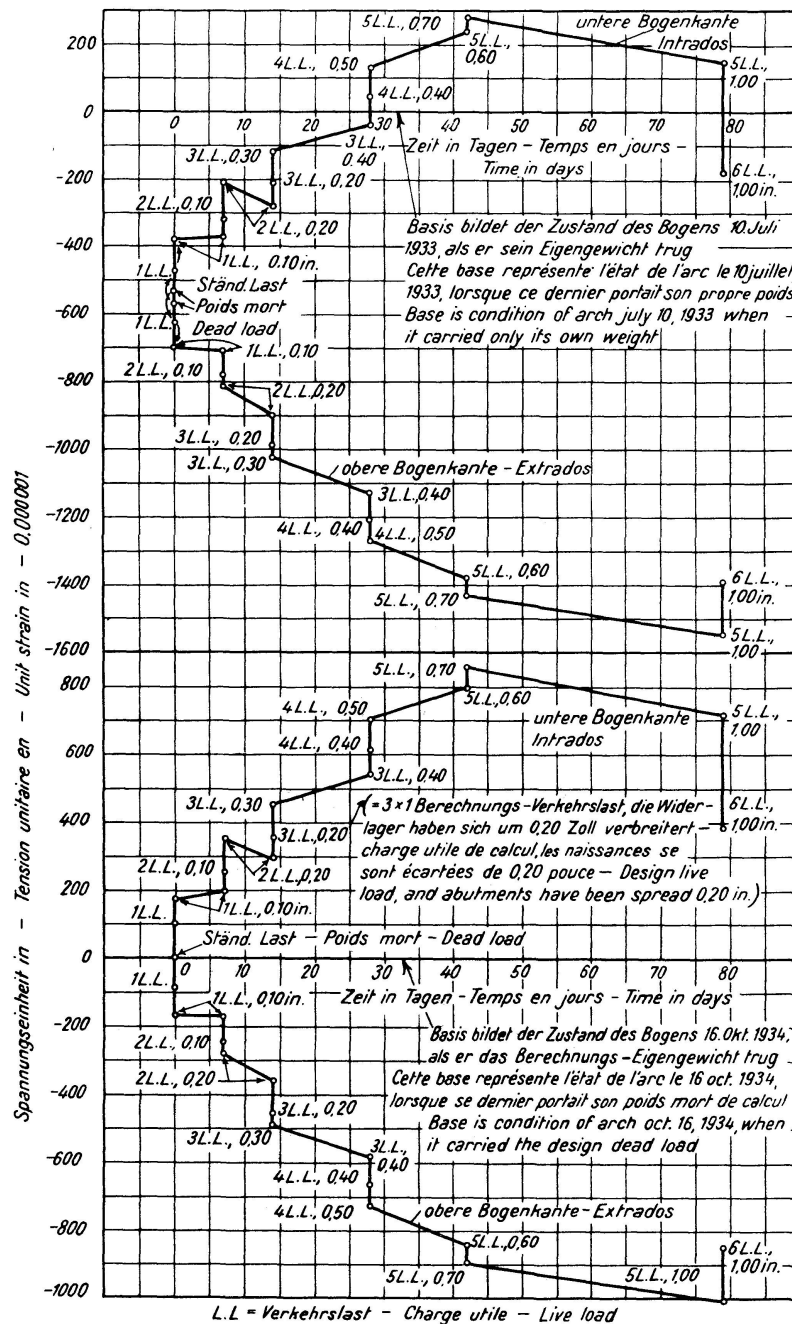 Spannungseinheit in - Tension unitaire en - Unit strain in - 0,000001
200
0
-200
-400
-600
-800
-1000
-1200
-1400
-1600
800
600
400
200
0
-200
-400
-600
-800
-1000
5L.L., 0,70
5L.L.,
0,60
untere Bogenkante
Intrados
5L.L.,
1,00
4L.L., 0,50
4L.L., 0,40
0 10 20 30 40 50 60 70 80
3L.L., 0,30
3L.L.,
0,40
Zeit in Tagen - Temps en jours -
Time in days
3L.L., 0,20
6L.L.,
1,00in.
2L.L., 0,10
2L.L., 0,20
Basis bildet der Zustand des Bogens 10.Juli
1933, als er sein Eigengewicht trug
Cette base représente l'état de l'arc le 10 juillet
1933, lorsque ce dernier portait son propre poids
Base is condition of arch july 10, 1933 when
it carried only its own weight
1L.L., 0,10in.
1L.L.
Ständ. Last
Poids mort
1L.L.
Dead load
1L.L., 0,10
2L.L., 0,10
2L.L., 0,20
3L.L., 0,20
3L.L., 0,30
obere Bogenkante - Extrados
3L.L., 0,40
4L.L., 0,40
4L.L., 0,50
5L.L., 0,60
5L.L., 0,70
6L.L.,
1,00in.
5L.L.,
1,00
5L.L., 0,70
5L.L., 0,60
4L.L., 0,50
untere Bogenkante
Intrados
5L.L.,
1,00
4L.L., 0,40
3L.L., 0,40
3L.L., 0,30
3L.L., 0,20
(= 3 x 1 Berechnungs-Verkehrslast, die Wider-
lager haben sich um 0,20 Zoll verbreitert -
charge utile de calcul, les naissances se
sont écartées de 0,20 pouce - Design live
load, and abutments have been spread 0,20 in.)
6L.L.,
1,00in.
2L.L., 0,10
2L.L., 0,20
1L.L., 0,10in.
1L.L.
Ständ. Last - Poids mort - Dead load
0 10 20 30 40 50 60 70 80
1L.L.
1L.L., 0,10in.
Zeit in Tagen - Temps en jours - Time in days
2L.L., 0,10
2L.L., 0,20
Basis bildet der Zustand des Bogens 16.Okt. 1934,
als er das Berechnungs-Eigengewicht trug
Cette base représente l'état de l'arc le 16 oct. 1934,
lorsque se dernier portait son poids mort de calcul
Base is condition of arch oct. 16, 1934, when
it carried the design dead load
3L.L., 0,20
3L.L., 0,30
3L.L.,
0,40
4L.L., 0,40
4L.L., 0,50
obere Bogenkante-Extrados
5L.L., 0,60
5L.L., 0,70
5L.L., 1,00
6L.L.,
1,00in.
L.L = Verkehrslast - Charge utile - Live load